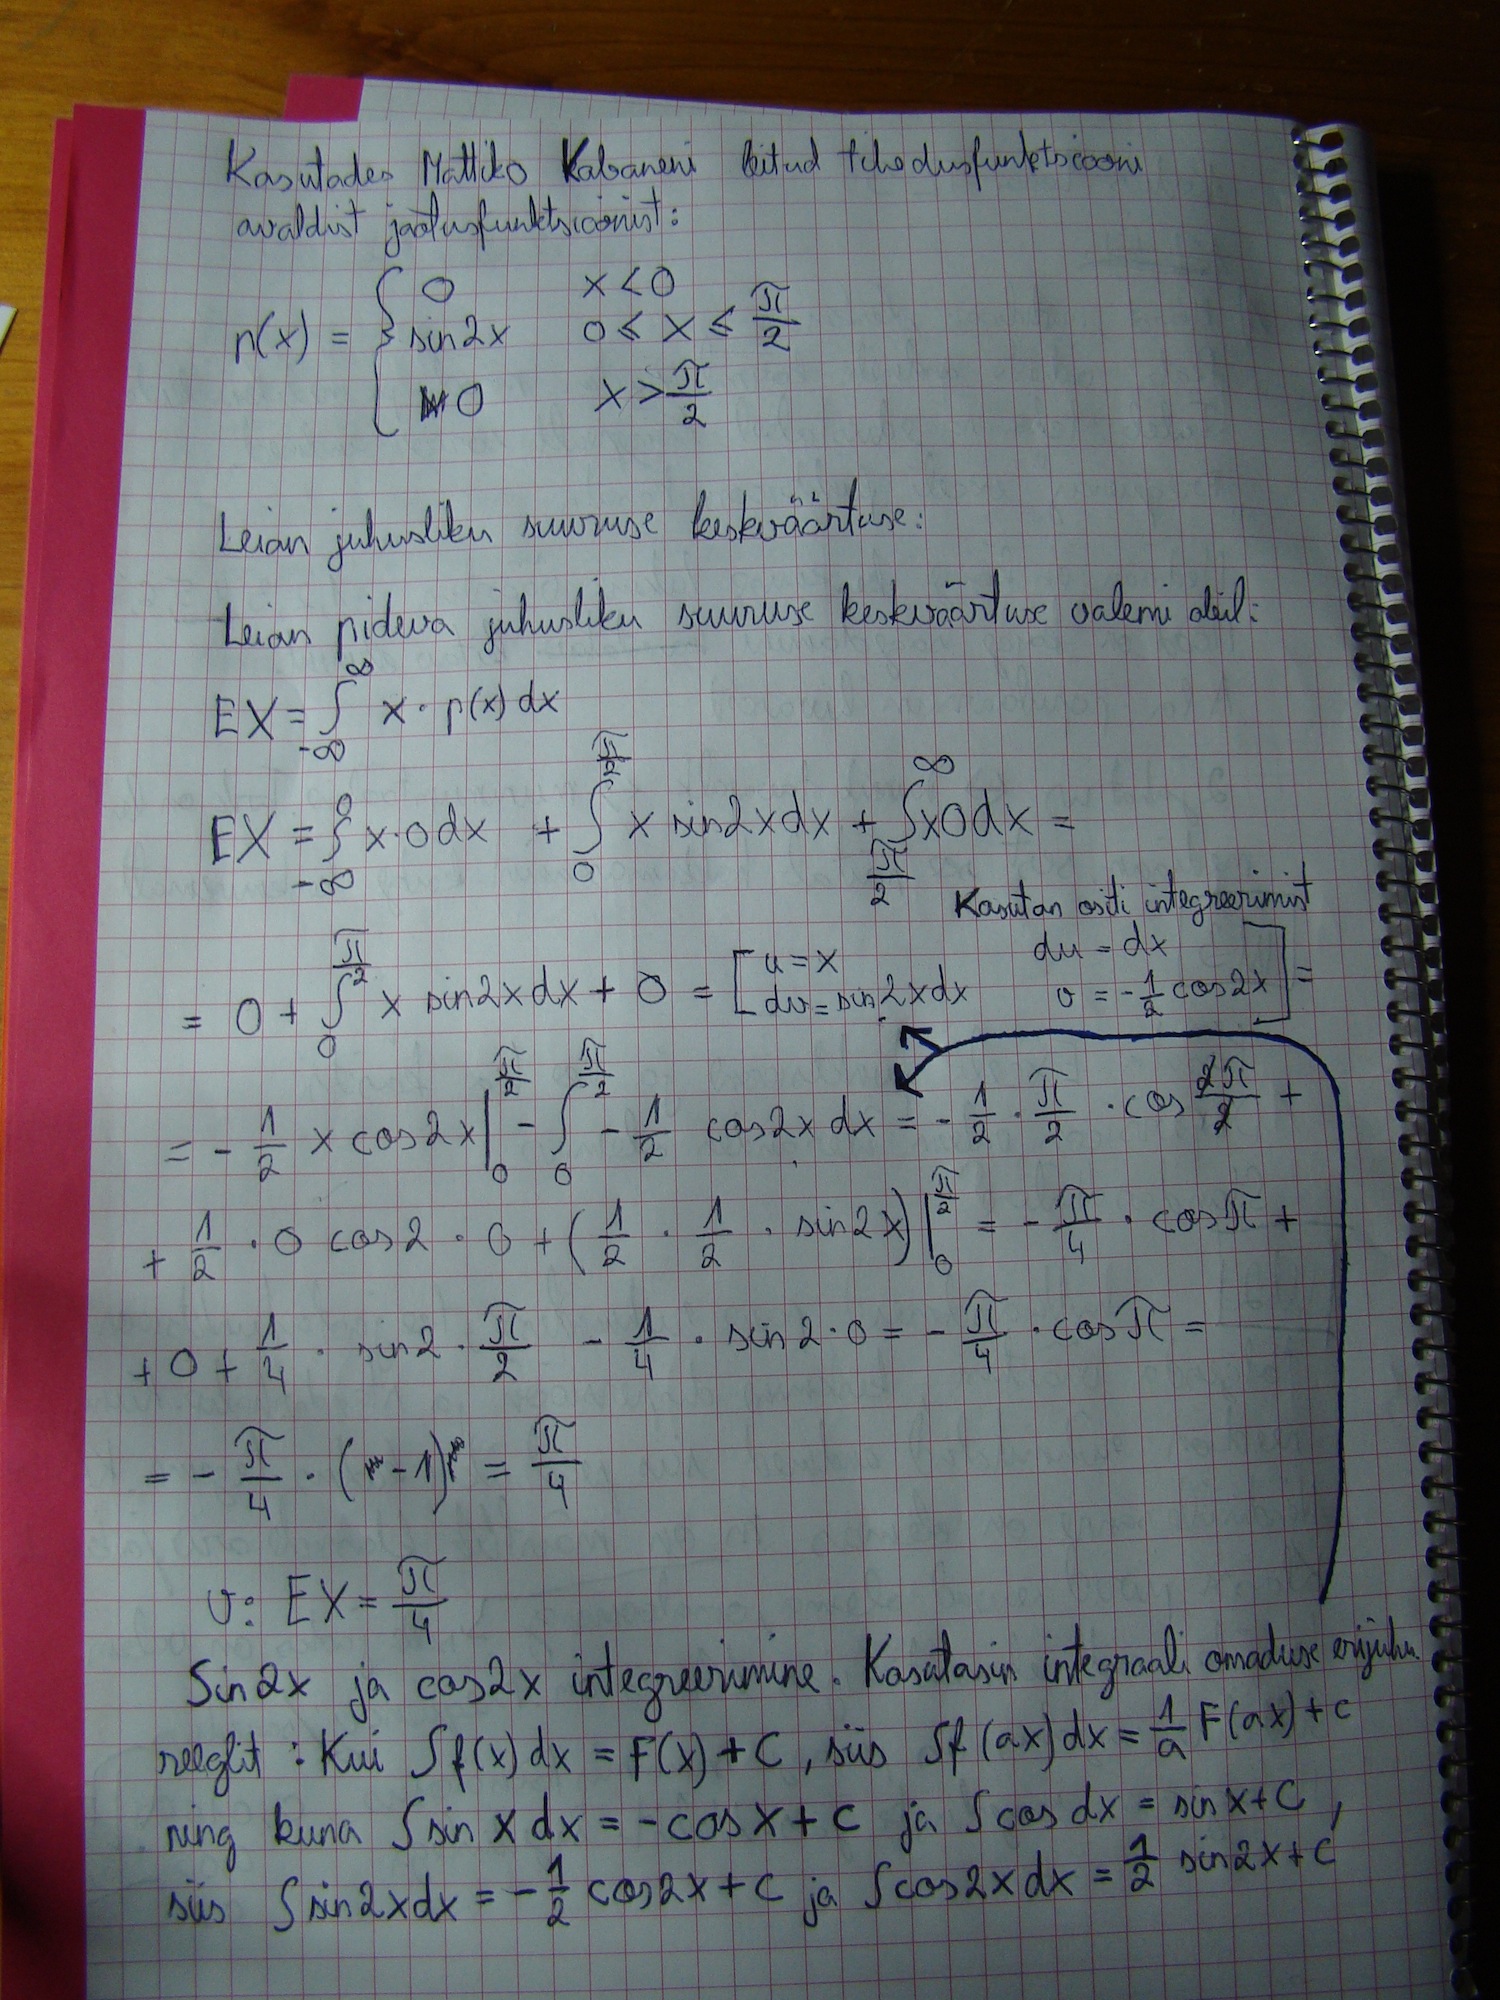 Kasutades Mattiko Kabaneni leitud tihedusfunktsiooni
avaldist jaotusfunktsioonist:
p(x) = { 0 x < 0
sin2x 0 ≤ x ≤ π/2
0 x > π/2
Leian juhusliku suuruse keskväärtuse:
Leian pideva juhusliku suuruse keskväärtuse valemi abil:
EX = ∫_{-∞}^{∞} x · p(x) dx
EX = ∫_{-∞}^{0} x · 0 dx + ∫_{0}^{π/2} x sin2x dx + ∫_{π/2}^{∞} x 0 dx =
Kasutan ositi integreerimist
= 0 + ∫_{0}^{π/2} x sin2x dx + 0 = [ u = x du = dx
dv = sin2x dx v = -1/2 cos2x ] =
= - 1/2 x cos2x |_{0}^{π/2} - ∫_{0}^{π/2} - 1/2 cos2x dx = - 1/2 · π/2 · cos 2π/2 +
+ 1/2 · 0 cos2 · 0 + (1/2 · 1/2 · sin2x) |_{0}^{π/2} = - π/4 · cosπ +
+ 0 + 1/4 · sin2 · π/2 - 1/4 · sin2 · 0 = - π/4 · cosπ =
= - π/4 · (-1) = π/4
V: EX = π/4
Sin2x ja cos2x integreerimine. Kasutasin integraali omaduse erijuhu
reeglit : Kui ∫f(x) dx = F(x) + C , siis ∫f(ax) dx = 1/a F(ax) + C
ning kuna ∫sin x dx = -cos x + C ja ∫cos dx = sin x + C ,
siis ∫sin2x dx = - 1/2 cos2x + C ja ∫cos2x dx = 1/2 sin2x + C